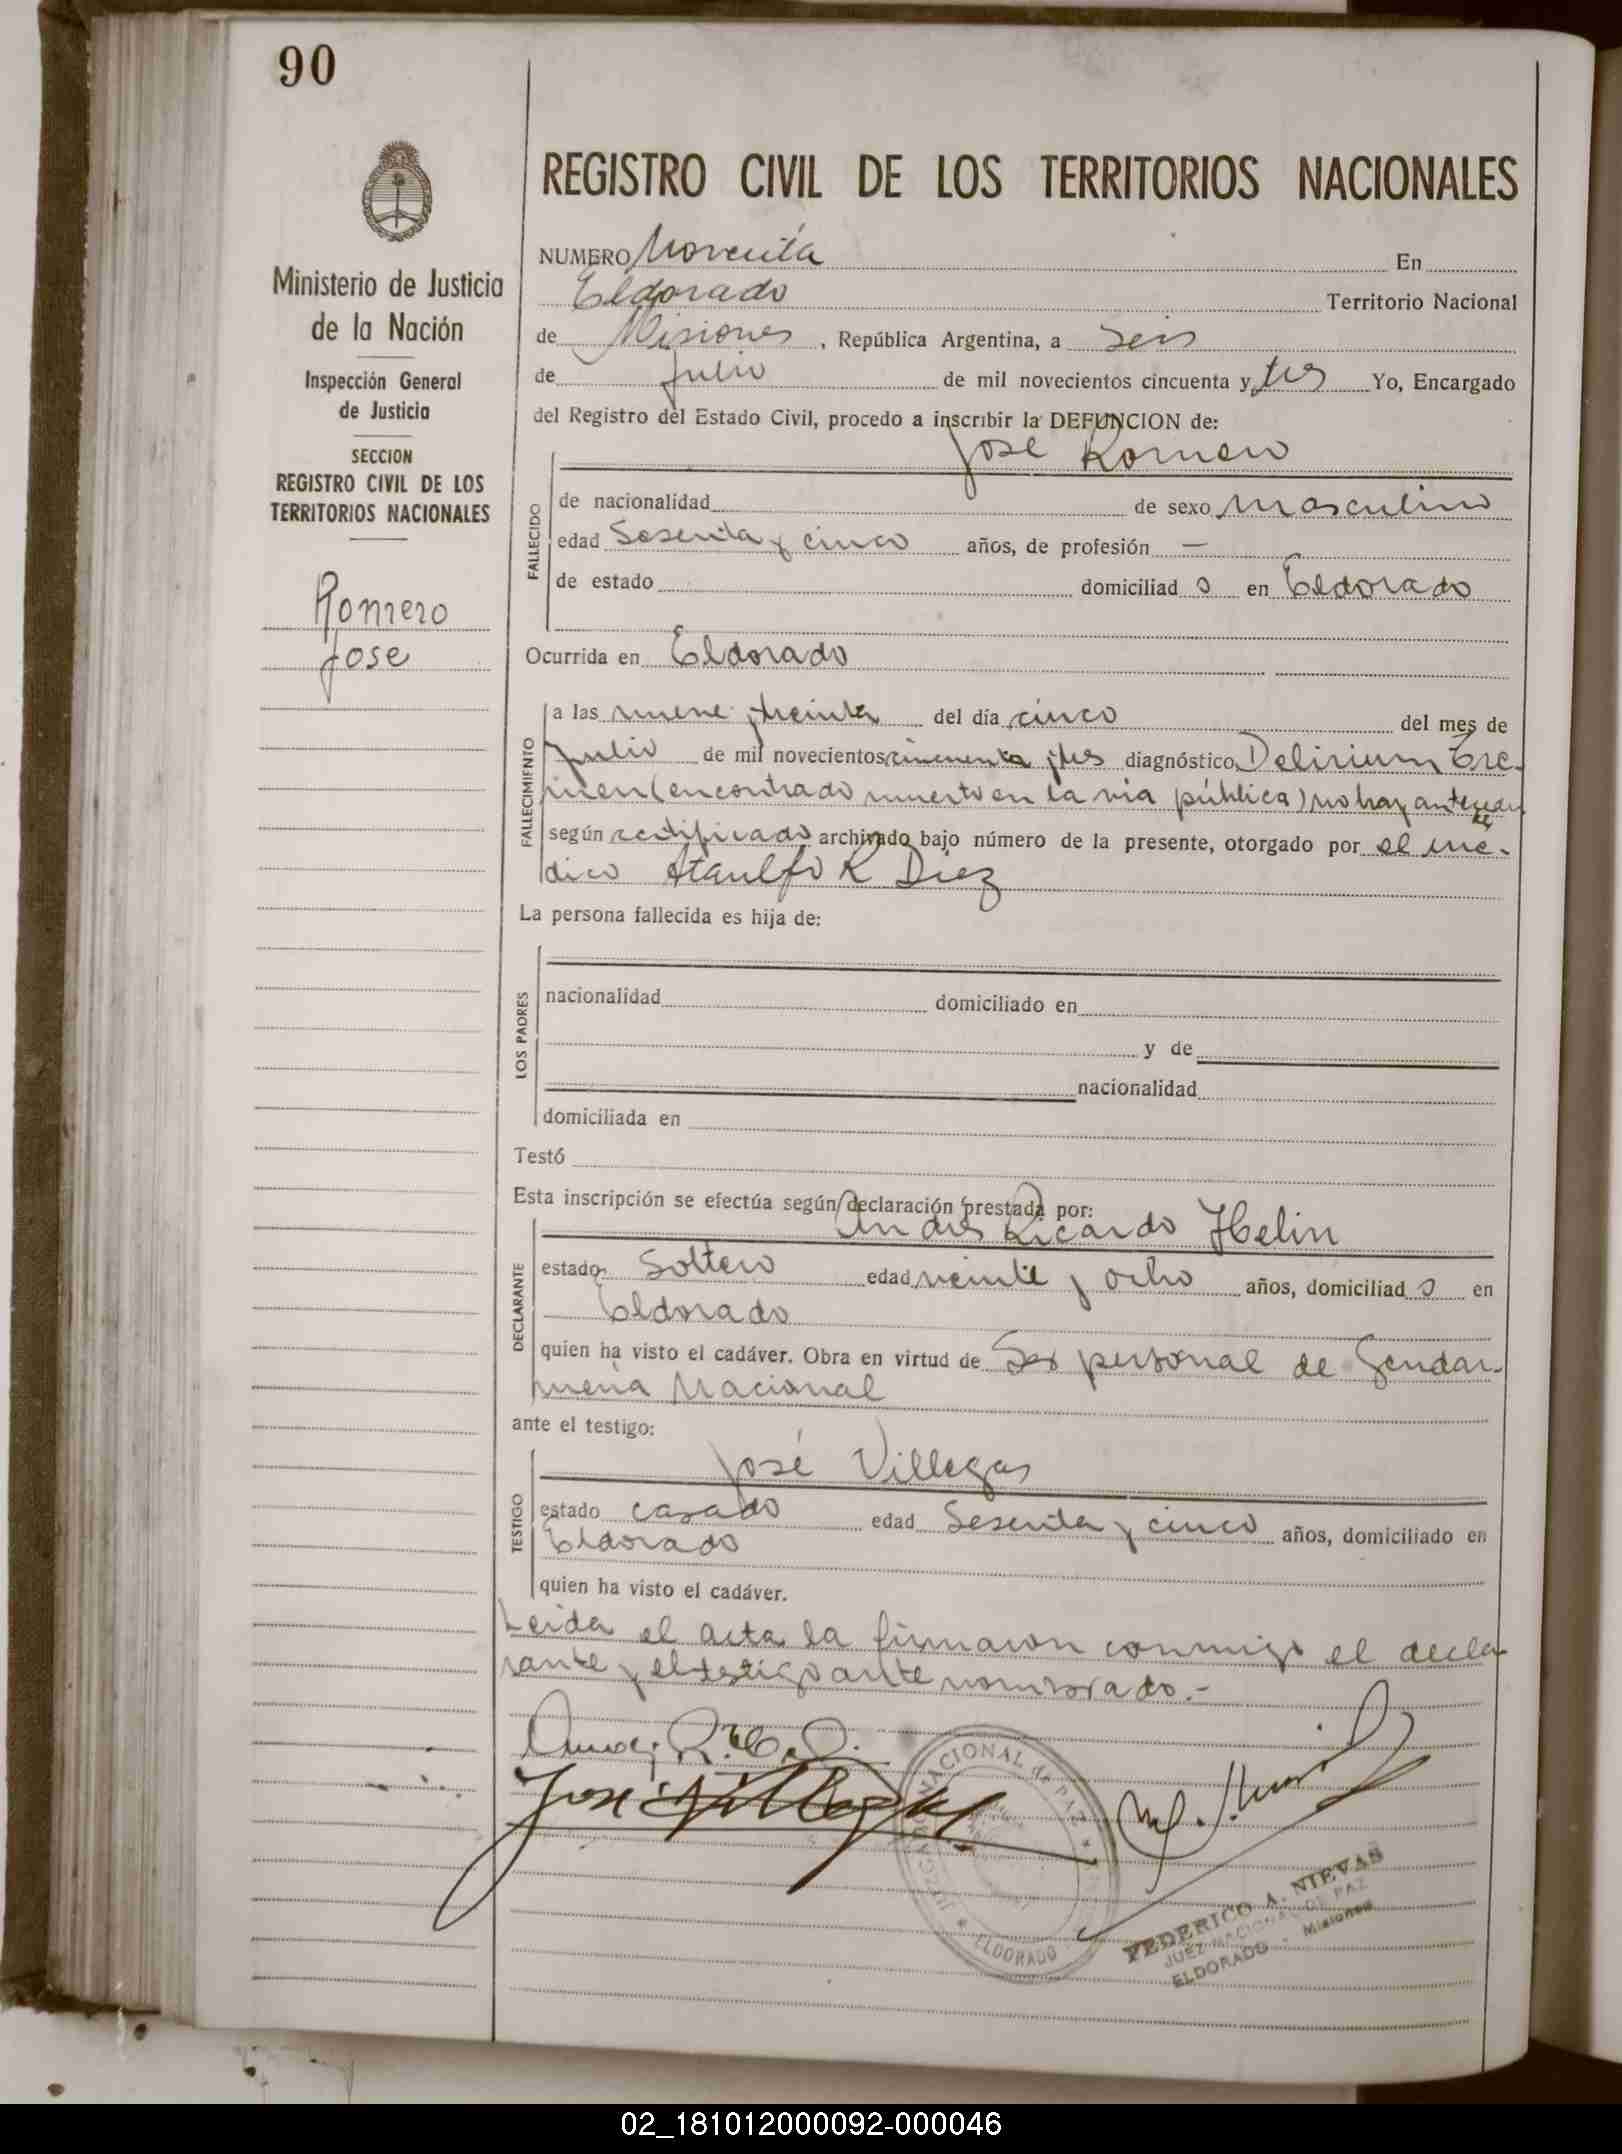 90
Ministerio de Justicia
de la Nación
Inspección General
de Justicia
SECCION
REGISTRO CIVIL DE LOS
TERRITORIOS NACIONALES
Romero
Jose
REGISTRO CIVIL DE LOS TERRITORIOS NACIONALES
NUMERO Noventa En
Eldorado Territorio Nacional
de Misiones, República Argentina, a Seis
de Julio de mil novecientos cincuenta y tres Yo, Encargado
del Registro del Estado Civil, procedo a inscribir la DEFUNCION de:
Jose Romero
FALLECIDO
de nacionalidad de sexo masculino
edad Sesenta y cinco años, de profesión —
de estado domiciliad o en Eldorado
Ocurrida en Eldorado
FALLECIMIENTO
a las nueve y treinta del día cinco del mes de
Julio de mil novecientos cincuenta y tres diagnóstico Delirium Tre-
men (encontrado muerto en la via pública) no hay
según certificado archivado bajo número de la presente, otorgado por el me-
dico Ataulfo R Diez
La persona fallecida es hija de:
LOS PADRES
nacionalidad domiciliado en
y de
nacionalidad
domiciliada en
Testó
Esta inscripción se efectúa según declaración prestada por:
Andres Ricardo Helin
DECLARANTE
estado Soltero edad veinte y ocho años, domiciliad o en
Eldorado
quien ha visto el cadáver. Obra en virtud de Ser personal de Gendar-
meria Nacional
ante el testigo:
José Villegas
TESTIGO
estado casado edad Sesenta y cinco años, domiciliado en
Eldorado
quien ha visto el cadáver.
Leida el acta la firmaron conmigo el decla-
rante y el testigo ante nombrado.-
José Villegas
JUZGADO NACIONAL de PAZ
ELDORADO
FEDERICO A. NIEVAS
JUEZ NACIONAL DE PAZ
ELDORADO - Misiones
02_181012000092-000046